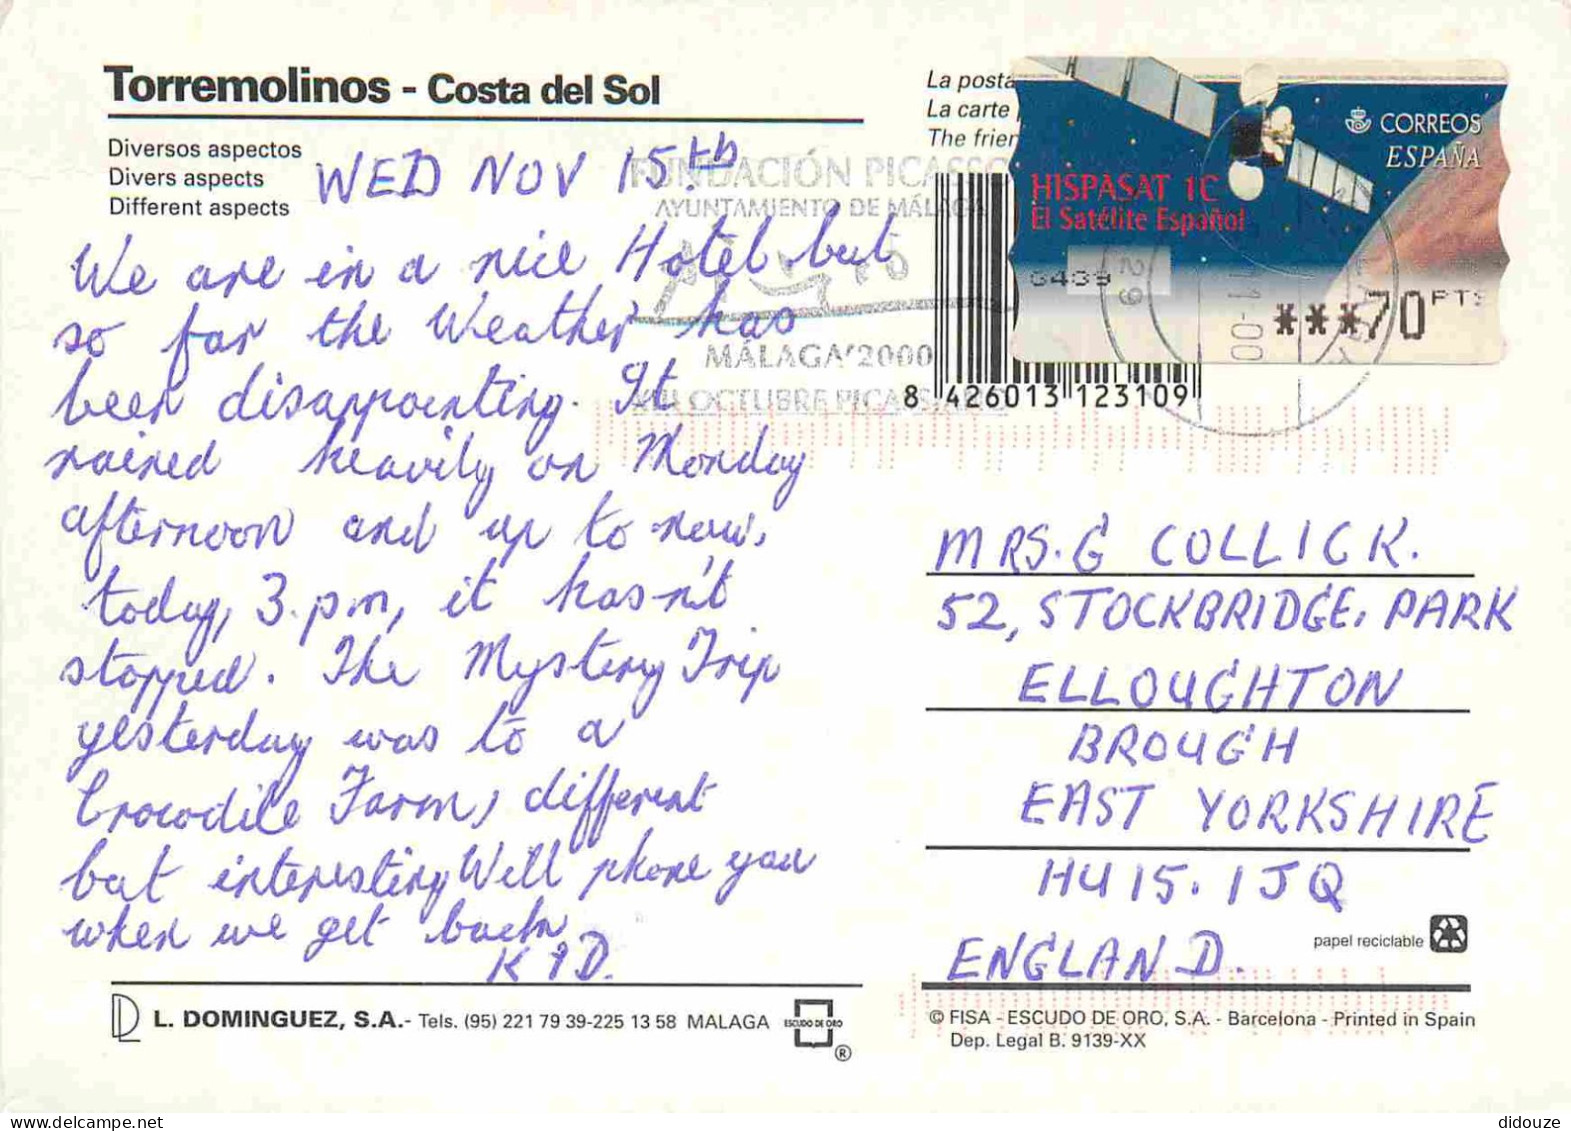 Torremolinos - Costa del Sol
Diversos aspectos
Divers aspects
Different aspects
WED NOV 15th
We are in a nice Hotel but
so far the Weather has
been disappointing. It
rained heavily on Monday
afternoon and up to now,
today, 3.pm, it hasn't
stopped. The Mystery Trip
yesterday was to a
Crocodile Farm, different
but interesting Will phone you
when we get back
K &D.
L. DOMINGUEZ, S.A.- Tels. (95) 221 79 39-225 13 58 MALAGA
ESCUDO DE ORO
®
FUNDACIÓN PICASSO
AYUNTAMIENTO DE MÁLAGA
MÁLAGA'2000
XIII OCTUBRE PICASSIANO
La posta
La carte
The frien
CORREOS
ESPAÑA
HISPASAT 1C
El Satélite Español
0409
***70 PTS
29
11-00
8 426013 123109
MRS. G COLLICK.
52, STOCKBRIDGE, PARK
ELLOUGHTON
BROUGH
EAST YORKSHIRE
HU15. 1JQ
ENGLAND.
papel reciclable
© FISA - ESCUDO DE ORO, S.A. - Barcelona - Printed in Spain
Dep. Legal B. 9139-XX
didouze